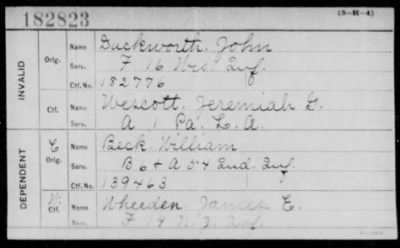 182823
(3-H-4)
INVALID
Orig. Name Duckworth, John
Serv. F 16 Wis. Inf.
Ctf. No. 182776
Ctf. Name Wescott, Jeremiah G.
Serv. A 1 Pa. L. A.
DEPENDENT
C Orig. Name Beck, William
Serv. B 6 & A 54 Ind. Inf.
Ctf. No. 139463
W. Ctf. Name Wheeden, James E.
Serv. F 14 N. J. Inf.